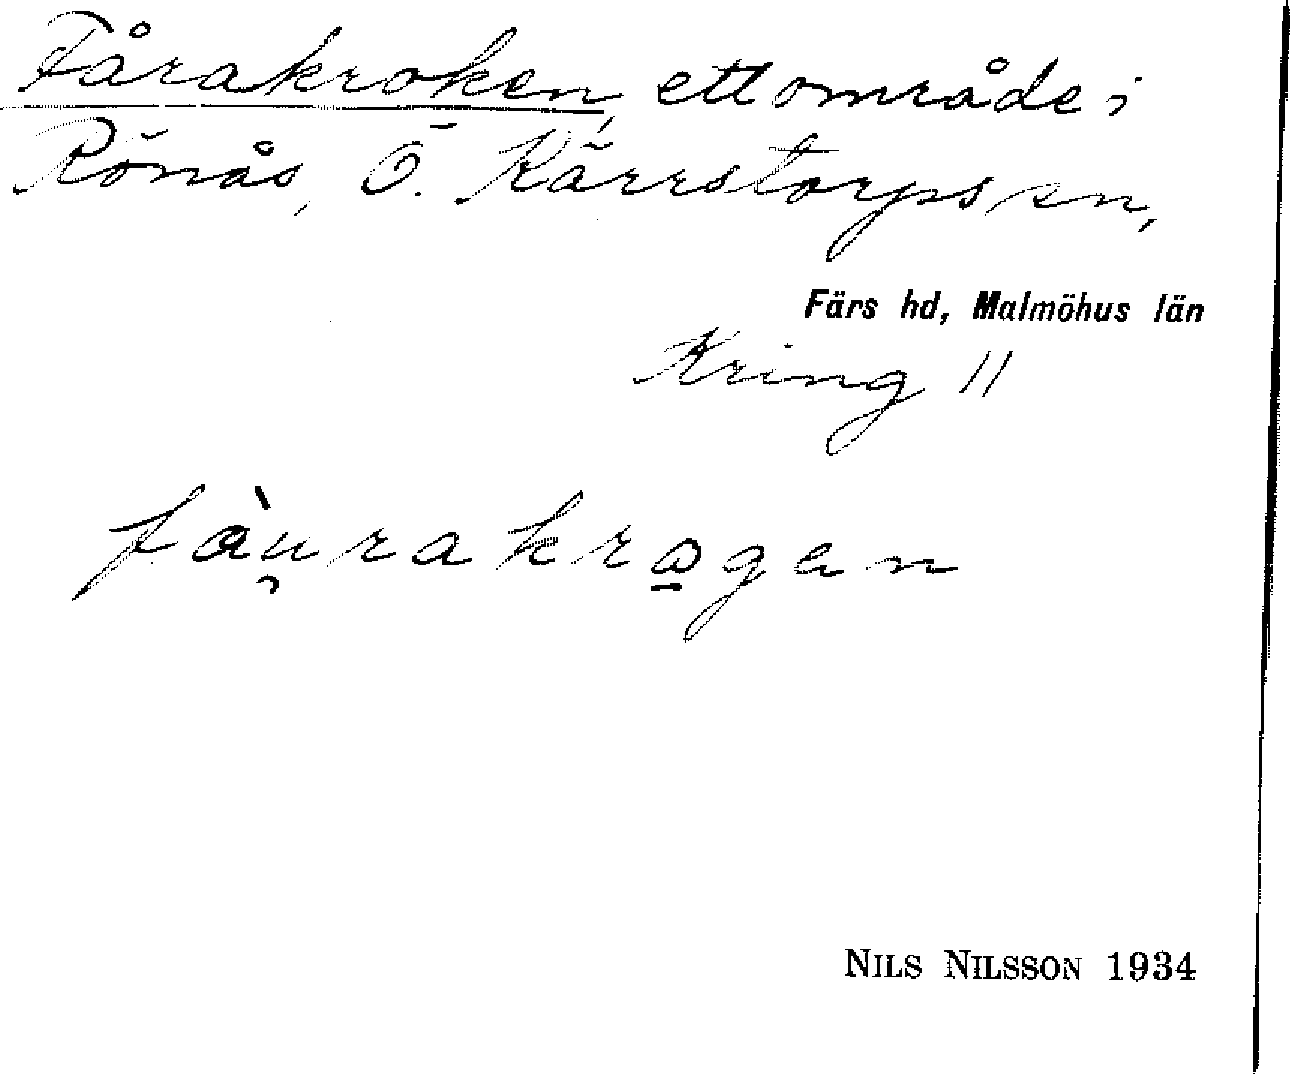 Fårakroken, ett område i
Rönås, Ö. Kärrstorps sn,
Färs hd, Malmöhus län
Kring 11
fàu̯rakro̲gan
NILS NILSSON 1934